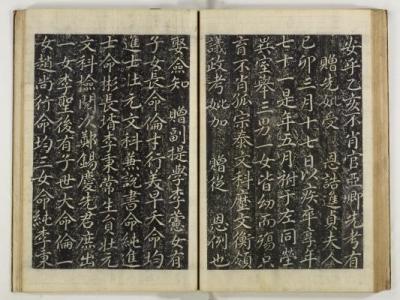 女乎乙亥不肖官亞卿先考有
贈先妣受 恩誥進貞夫人
己卯三月十七日以疾卒享年
七十一是年五月祔于左同塋
異室擧三男一女皆幼而殤只
有不肖孤宗泰文科歷文衡領
議政考妣加 贈從 恩例也
聚僉知 贈副提學李藼女有
子女長命倫才行義早夭命均
進士壯元文科兼說書命純進
士命彬長壻李東常生負壯元
文科檢閱次鄭錫慶先君庶出
一女李聖後有子世大命倫一
女趙尚行命均三女命純李東